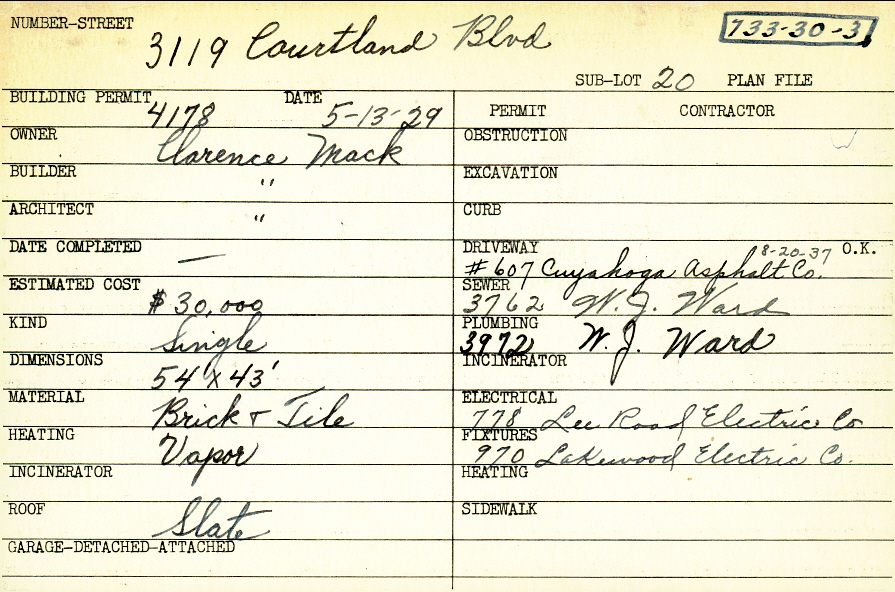 NUMBER-STREET
3119 Courtland Blvd
733-30-31
SUB-LOT 20 PLAN FILE
BUILDING PERMIT 4178 DATE 5-13-29
OWNER Clarence Mack
BUILDER "
ARCHITECT "
DATE COMPLETED —
ESTIMATED COST $30,000
KIND Single
DIMENSIONS 54' x 43'
MATERIAL Brick + Tile
HEATING Vapor
INCINERATOR
ROOF Slate
GARAGE-DETACHED-ATTACHED
PERMIT CONTRACTOR
OBSTRUCTION
EXCAVATION
CURB
DRIVEWAY 8-20-37 O.K.
#607 Cuyahoga Asphalt Co.
SEWER
3762 W. J. Ward
PLUMBING
3972 W. J. Ward
INCINERATOR
ELECTRICAL
778 Lee Road Electric Co
FIXTURES
970 Lakewood Electric Co.
HEATING
SIDEWALK